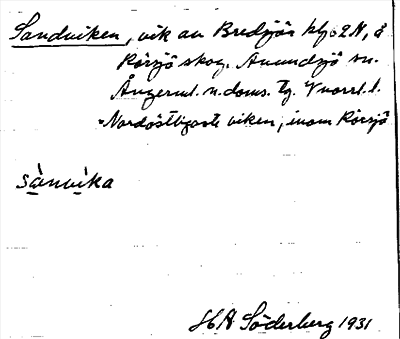 Sandviken, vik av Bredsjön kfs 2N, å
Rörsjö skog. Anundsjö sn.
Ångerml. n. doms. tg. Vnorrl. l.
"Nordöstligaste viken, inom Rörsjö
sànvìka
HA Söderberg 1931